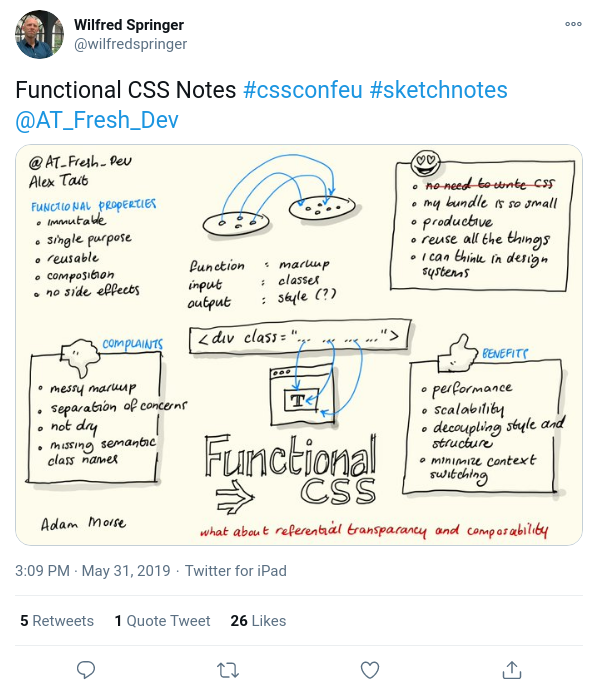 Wilfred Springer
@wilfredspringer
Functional CSS Notes #cssconfeu #sketchnotes
@AT_Fresh_Dev
@AT_Fresh_Dev
Alex Tait
FUNCTIONAL PROPERTIES
• immutable
• single purpose
• reusable
• composition
• no side effects
function : markup
input : classes
output : style (?)
• no need to write CSS
• my bundle is so small
• productive
• reuse all the things
• I can think in design
systems
<div class="... ... ... ...">
T
COMPLAINTS
• messy markup
• separation of concerns
• not dry
• missing semantic
class names
BENEFITS
• performance
• scalability
• decoupling style and
structure
• minimize context
switching
Functional
CSS
Adam Morse
what about referential transparancy and composability
3:09 PM · May 31, 2019 · Twitter for iPad
5 Retweets 1 Quote Tweet 26 Likes